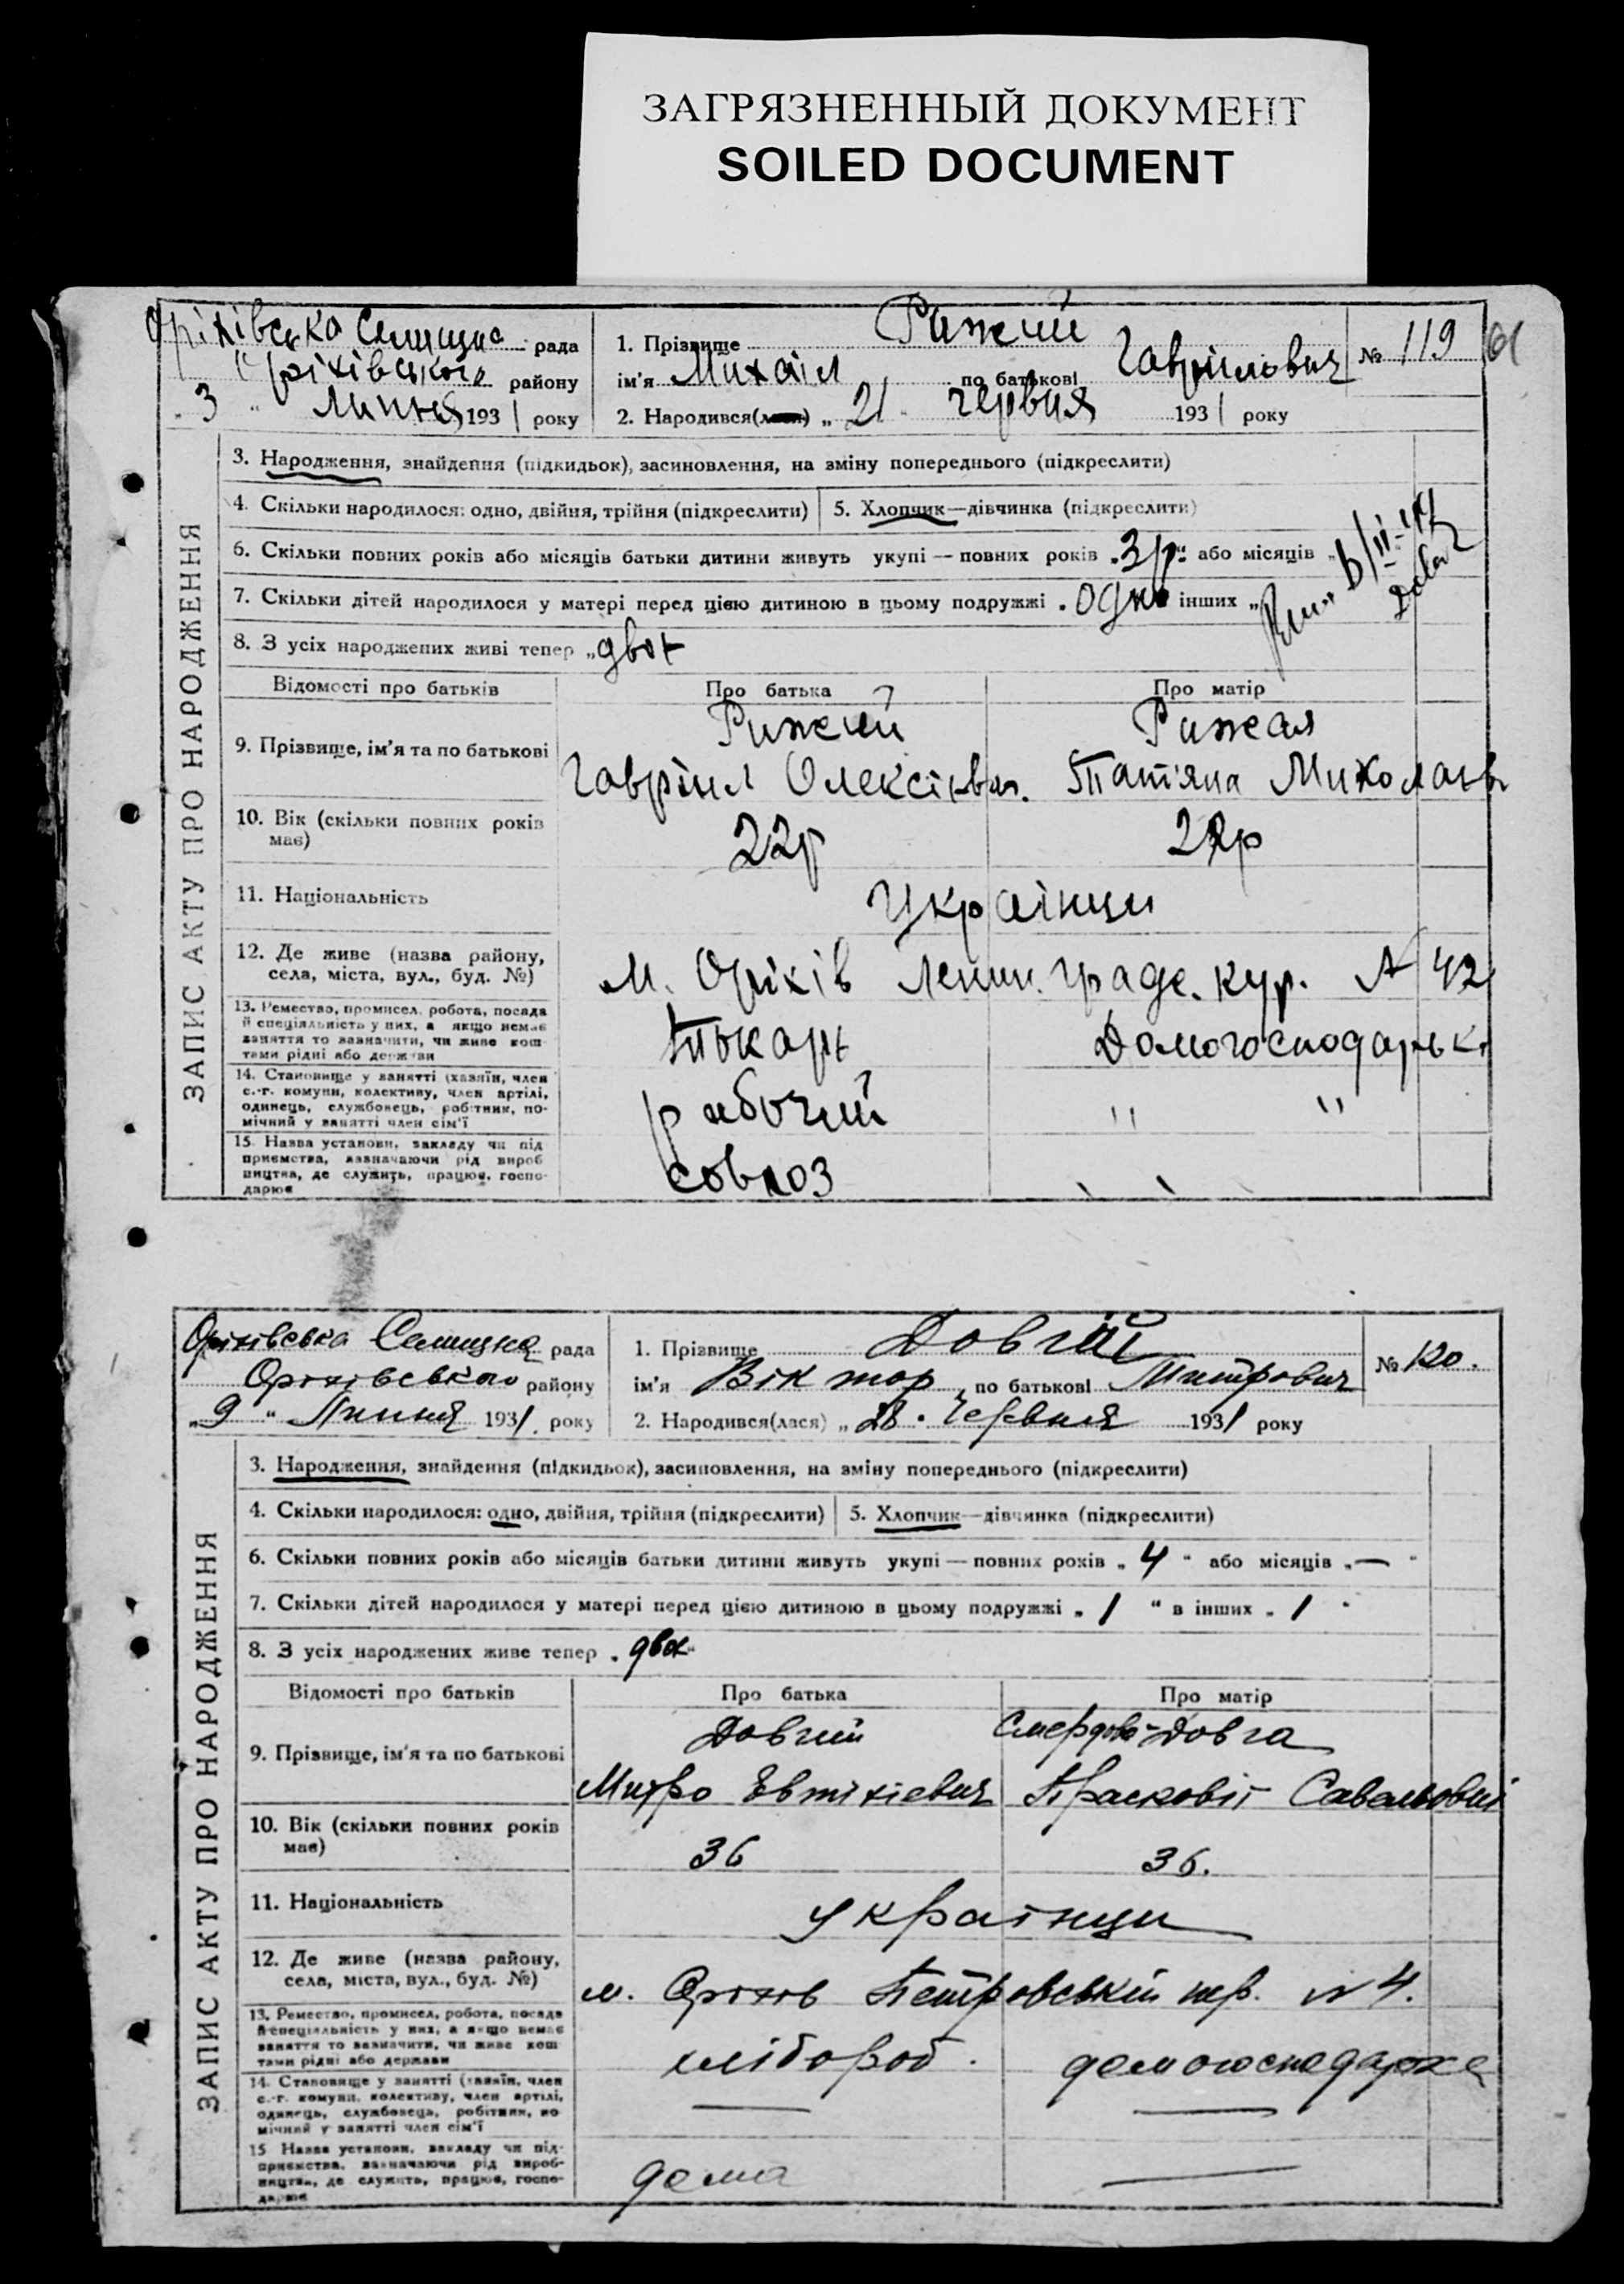 ЗАГРЯЗНЕННЫЙ ДОКУМЕНТ
SOILED DOCUMENT
Оріхівська Селищна рада
Оріхівського району
3 " Липня 1931 року
1. Прізвище Рижий
ім'я Михаіл по батькові Гавріилович
2. Народився(лася) „ 21 червня 1931 року
№ 119
61
ЗАПИС АКТУ ПРО НАРОДЖЕННЯ
3. Народження, знайдення (підкидьок), засиновлення, на зміну попереднього (підкреслити)
4. Скільки народилося: одно, двійня, трійня (підкреслити) 5. Хлопчик—дівчинка (підкреслити)
6. Скільки повних років або місяців батьки дитини живуть укупі — повних років „ 3 р. " або місяців „
7. Скільки дітей народилося у матері перед цією дитиною в цьому подружжі „ одно інших „
8. З усіх народжених живі тепер „ двоє
Відомості про батьків Про батька Про матір
9. Прізвище, ім'я та по батькові
Рижий Рижая
Гавріил Олексієвич. Татіяна Миколаів
10. Вік (скільки повних років має) 22р
11. Національність Українци
12. Де живе (назва району, села, міста, вул., буд. №)
м. Оріхів Ленинградс. кур. № 42
13. Ремество, промисел, робота, посада й спеціяльність у них, а якщо немає заняття то зазначити, чи живе коштами рідні або держави
Токарь Домогосподарька
14. Становище у занятті (хазяїн, член с.-г. комуни, колективу, член артілі, одинець, службовець, робітник, помічний у занятті член сім'ї
рабочий " "
15. Назва установи, закладу чи підприємства, зазначаючи рід виробництва, де служить, працює, господарює
совхоз
Оріхівська Селищна рада
Оріхівського району
„ 9 " Липня 1931. року
1. Прізвище Довгий
ім'я Віктор, по батькові Митрович
2. Народився(лася) „ 28. Червня 1931 року
№ 120.
ЗАПИС АКТУ ПРО НАРОДЖЕННЯ
3. Народження, знайдення (підкидьок), засиновлення, на зміну попереднього (підкреслити)
4. Скільки народилося: одно, двійня, трійня (підкреслити) 5. Хлопчик—дівчинка (підкреслити)
6. Скільки повних років або місяців батьки дитини живуть укупі — повних років „ 4 " або місяців „ — "
7. Скільки дітей народилося у матері перед цією дитиною в цьому подружжі „ 1 " в інших „ 1 "
8. З усіх народжених живе тепер „ двоє "
Відомості про батьків Про батька Про матір
9. Прізвище, ім'я та по батькові
Довгий Довга
Митро Євтихієвич Прасковія
10. Вік (скільки повних років має) 36 36.
11. Національність українци
12. Де живе (назва району, села, міста, вул., буд. №)
м. Оріхів Петровській № 4.
13. Ремество, промисел, робота, посада й спеціяльність у них, а якщо немає заняття то зазначити, чи живе коштами рідні або держави
хлібороб. домогосподарка
14. Становище у занятті (хазяїн, член с.-г. комуни, колективу, член артілі, одинець, службовець, робітник, помічний у занятті член сім'ї
15. Назва установи, закладу чи підприємства, зазначаючи рід виробництва, де служить, працює, господарює
дома